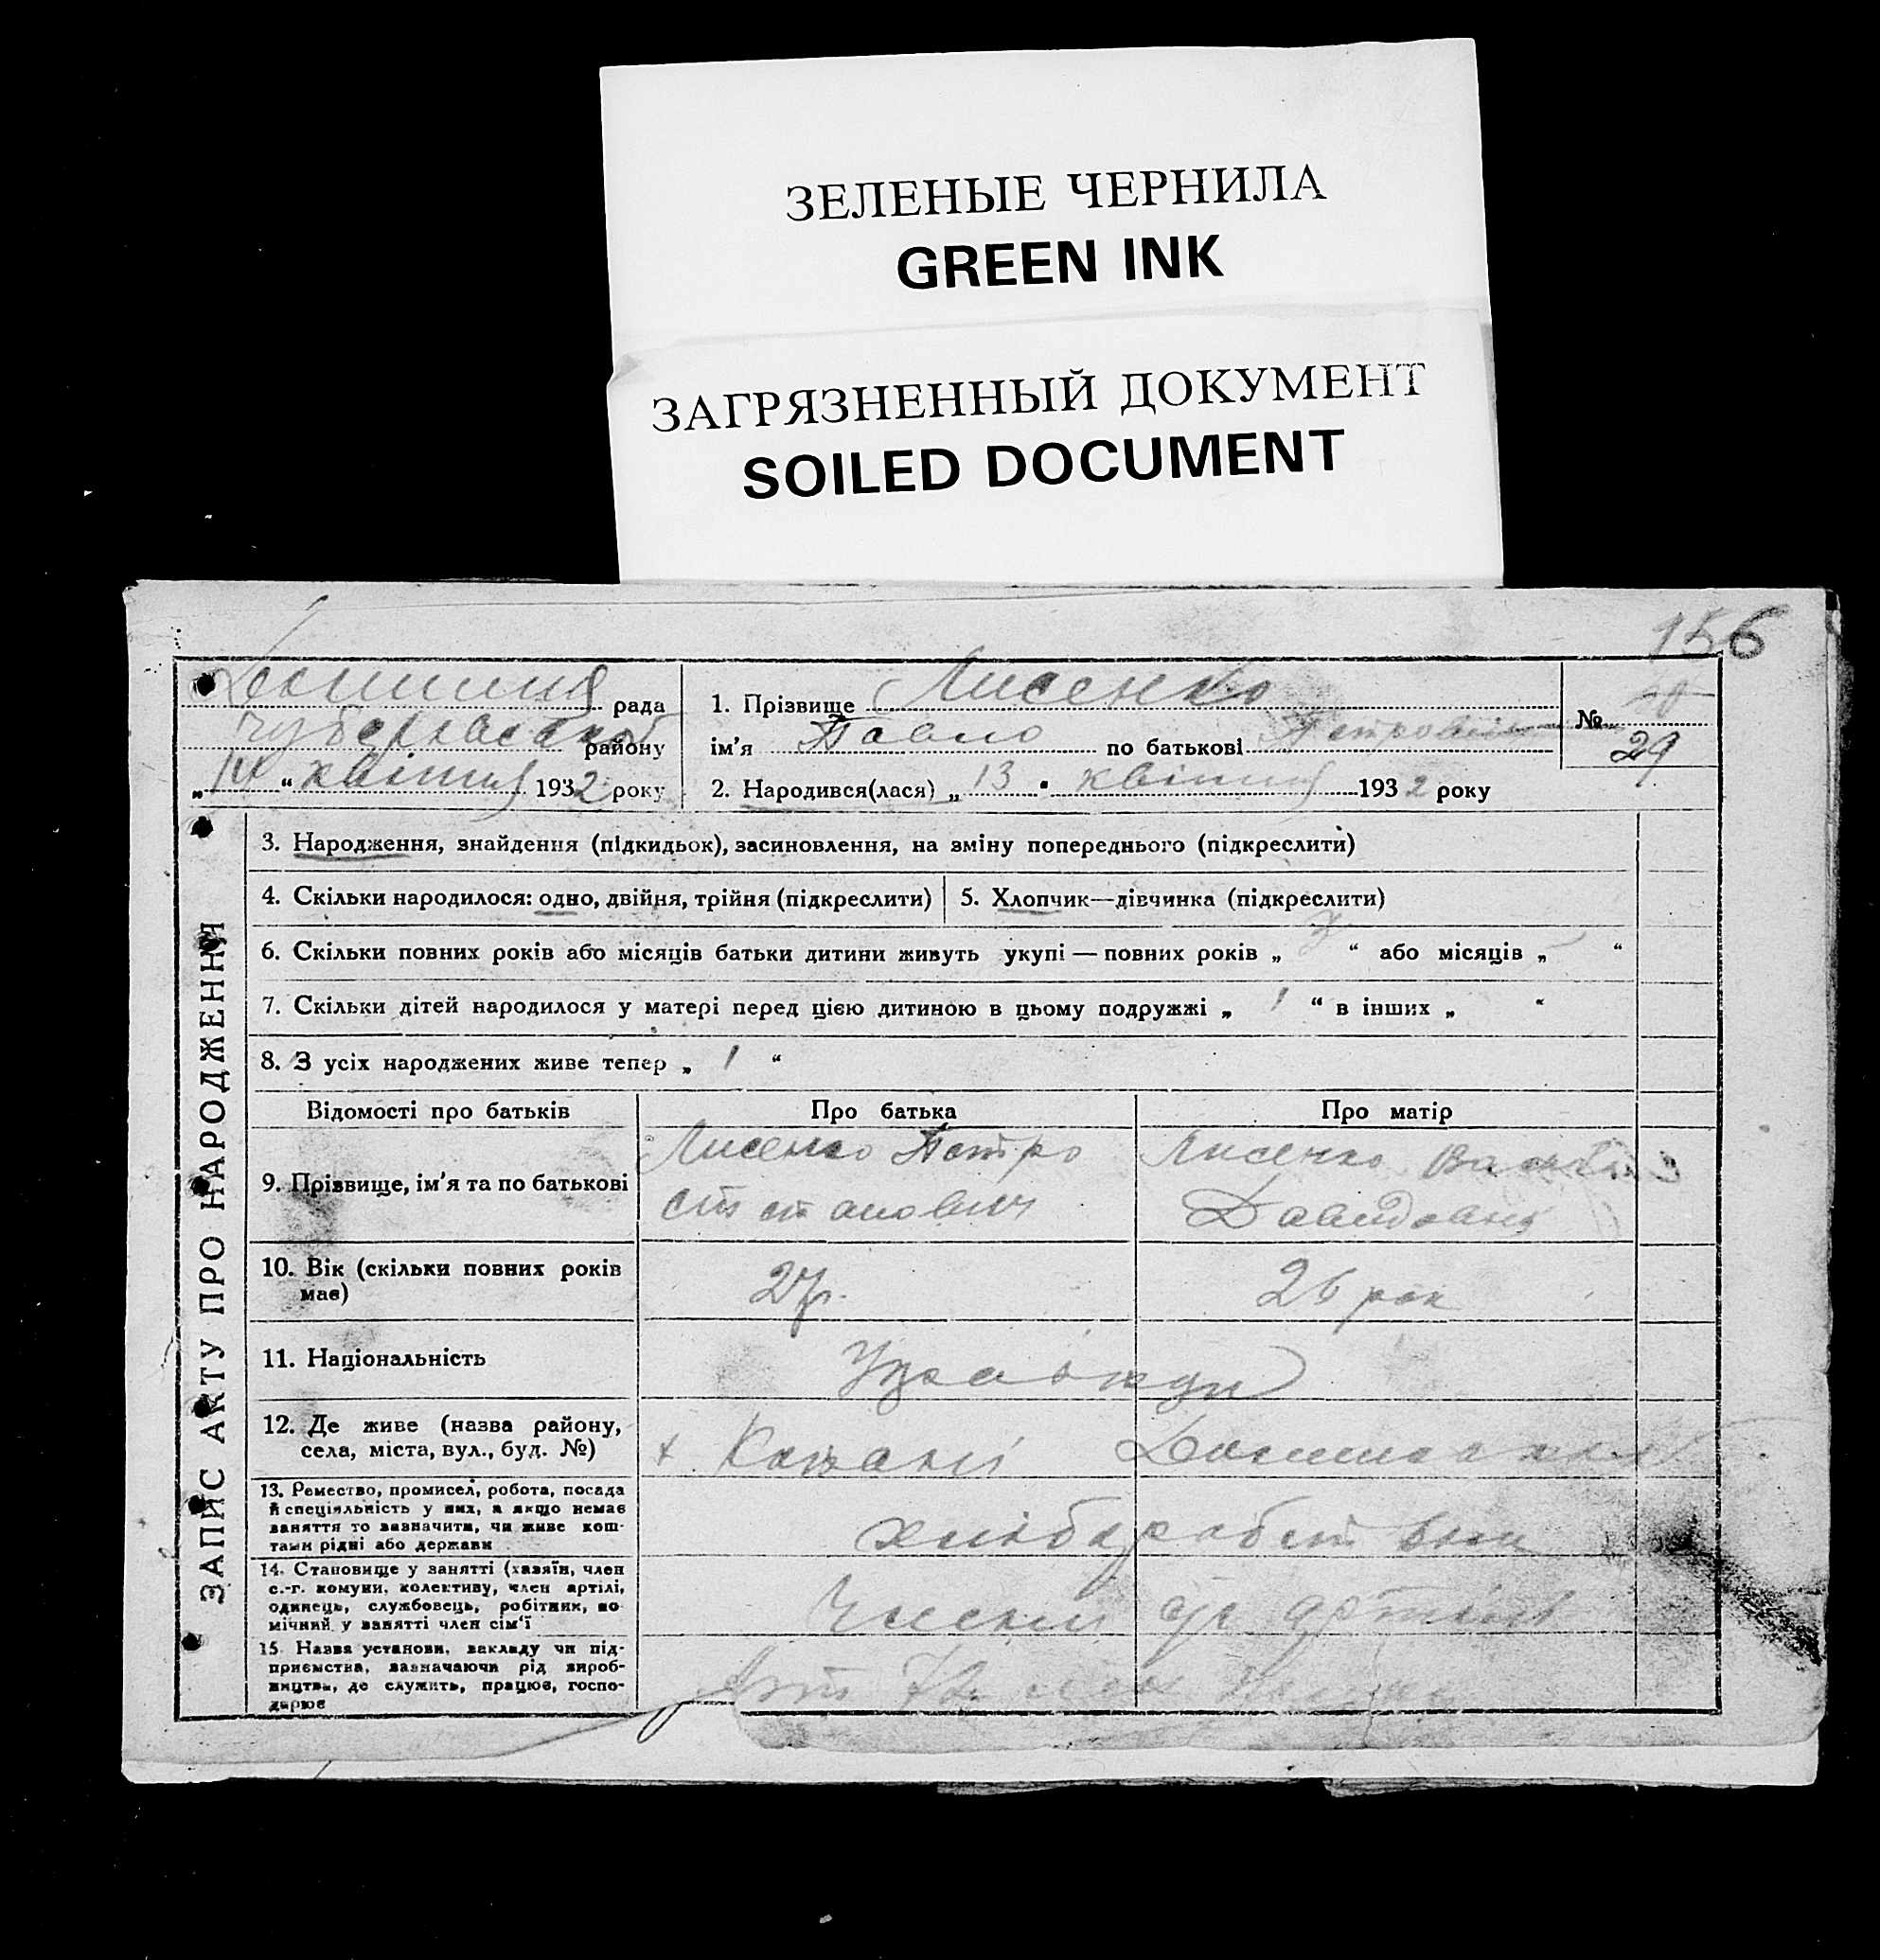 ЗЕЛЕНЫЕ ЧЕРНИЛА
GREEN INK
ЗАГРЯЗНЕННЫЙ ДОКУМЕНТ
SOILED DOCUMENT
156
рада
району
„14“ квітня 1932 року
1. Прізвище Лисенко
ім'я Павло по батькові Петрович
2. Народився(лася) „13 " квітня 1932 року
№ 29
ЗАПИС АКТУ ПРО НАРОДЖЕННЯ
3. Народження, знайдення (підкидьок), засиновлення, на зміну попереднього (підкреслити)
4. Скільки народилося: одно, двійня, трійня (підкреслити)
5. Хлопчик—дівчинка (підкреслити)
6. Скільки повних років або місяців батьки дитини живуть укупі — повних років „ 3 “ або місяців „ – “
7. Скільки дітей народилося у матері перед цією дитиною в цьому подружжі „ 1 “ в інших „ “
8. З усіх народжених живе тепер „ 1 “
Відомості про батьків Про батька Про матір
9. Прізвище, ім'я та по батькові
Лисенко Петро
Лисенко
Давидовна
10. Вік (скільки повних років
має)
27 р.
26 рок
11. Національність
12. Де живе (назва району,
села, міста, вул., буд. №)
13. Ремество, промисел, робота, посада
й спеціяльність у них, а якщо немає
заняття то зазначити, чи живе кош-
тами рідні або держави
14. Становище у занятті (хазяїн, член
с.-г. комуни, колективу, член артілі,
одинець, службовець, робітник, по-
мічний у занятті член сім'ї
15. Назва установи, закладу чи під-
приємства, зазначаючи рід вироб-
ництва, де служить, працює, госпо-
дарює